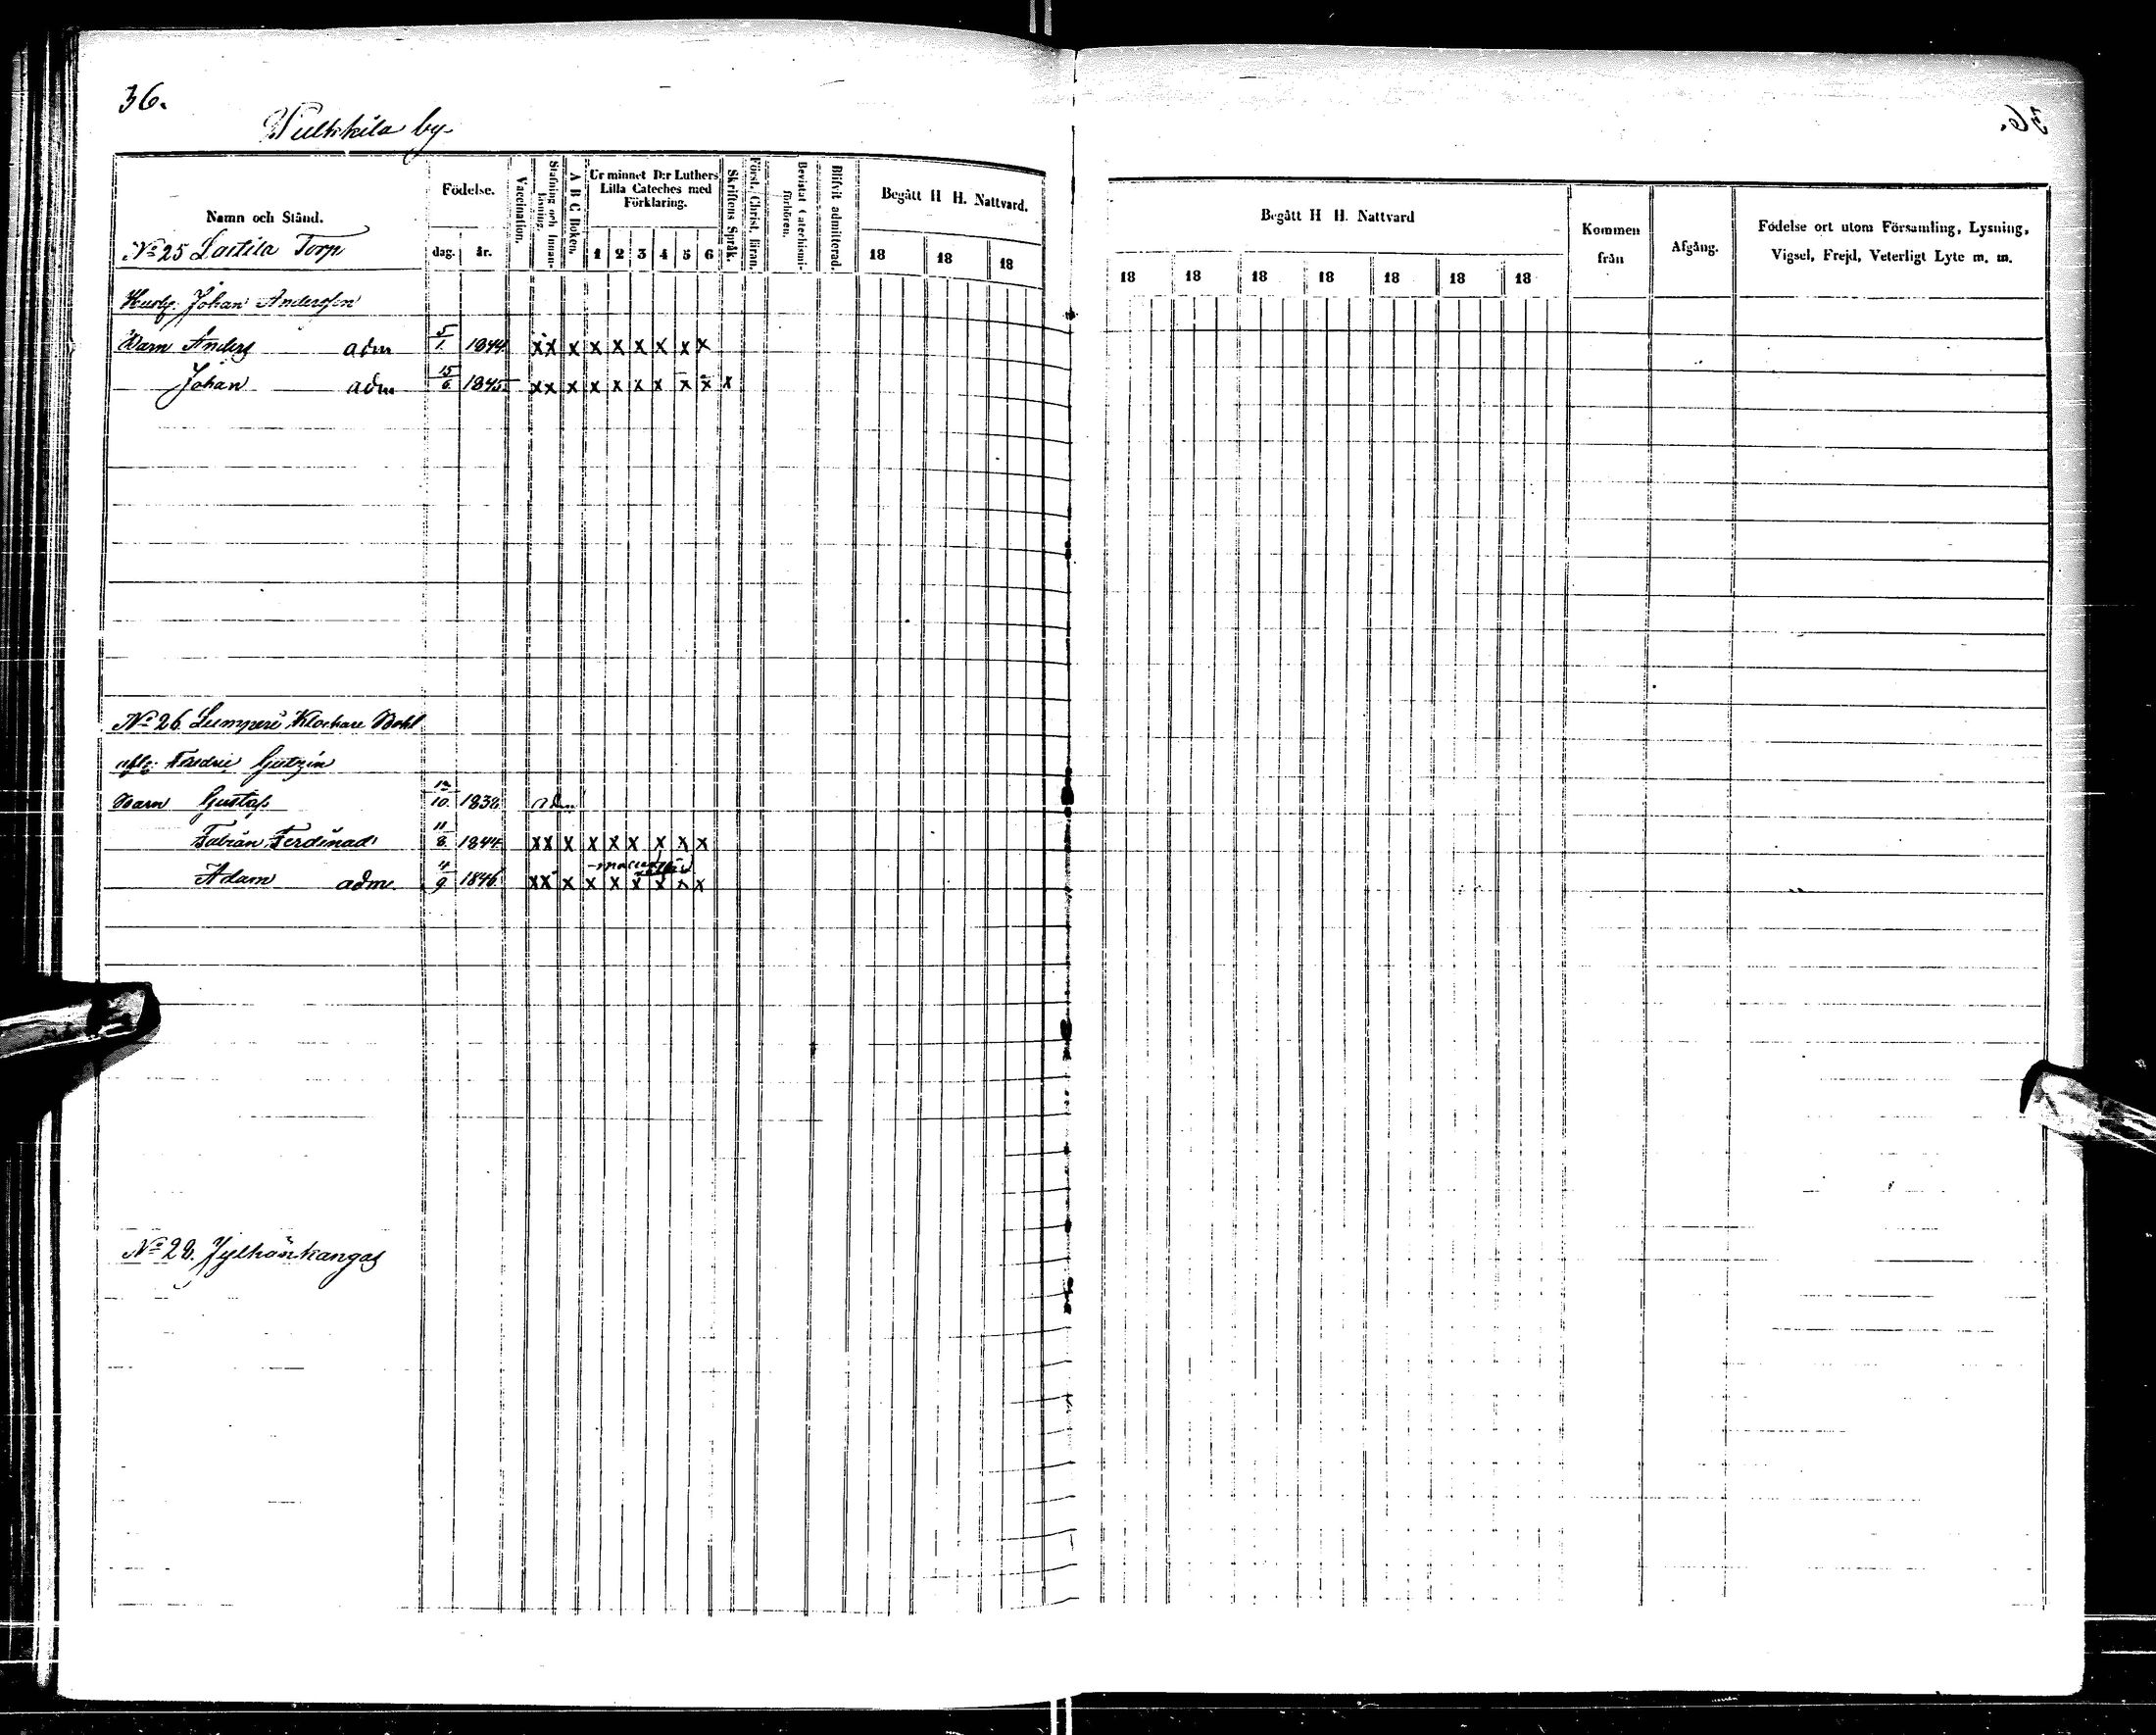 36.
36.
Pulkkila by
Namn och Stånd.
Födelse.
dag. år.
Vaccination.
Stafning och Innanläsning.
A B C Boken.
Ur minnet D:r Luthers Lilla Cateches med Förklaring.
1 2 3 4 5 6
Skriftens Språk.
Först. Christ. läran.
Bevistat Catechismiförhören.
Blifvit admitterad.
Begått H H. Nattvard.
18 18 18
Begått H H. Nattvard
18 18 18 18 18 18 18
Kommen från
Afgång.
Födelse ort utom Församling, Lysning,
Vigsel, Frejd, Veterligt Lyte m. m.
No 25 Laitila Torp
Husb. Johan Andersson
Barn Anders adm 5/1 1844 x x x x x x x x x
Johan adm 15/6 1845 x x x x x x x x x x
No 26 Lumperi Klockare Bohl
afl: Fredric Gutzén
Barn Gustaf 12/10 1838 adm
Fabian Ferdinad 11/8 1844 x x x x x x x x x
Adam adm. 4/9 1846 x x x x x x x x x
No 28. Jylhänkangas